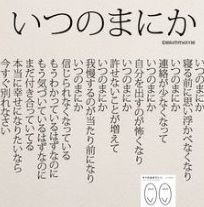 いつのまにか
いつのまにか
寝る前に思い浮かべなくなり
いつのまにか
連絡が少なくなって
いつのまにか
自分を出すのが怖くなり
いつのまにか
許せないことが増えて
いつのまにか
我慢するのが当たり前になり
いつのまにか
信じられなくなっている
もうわかっているはずなのに
もう気づいているはずなのに
まだ付き合っている
本当に幸せになりたいなら
今すぐ別れなさい